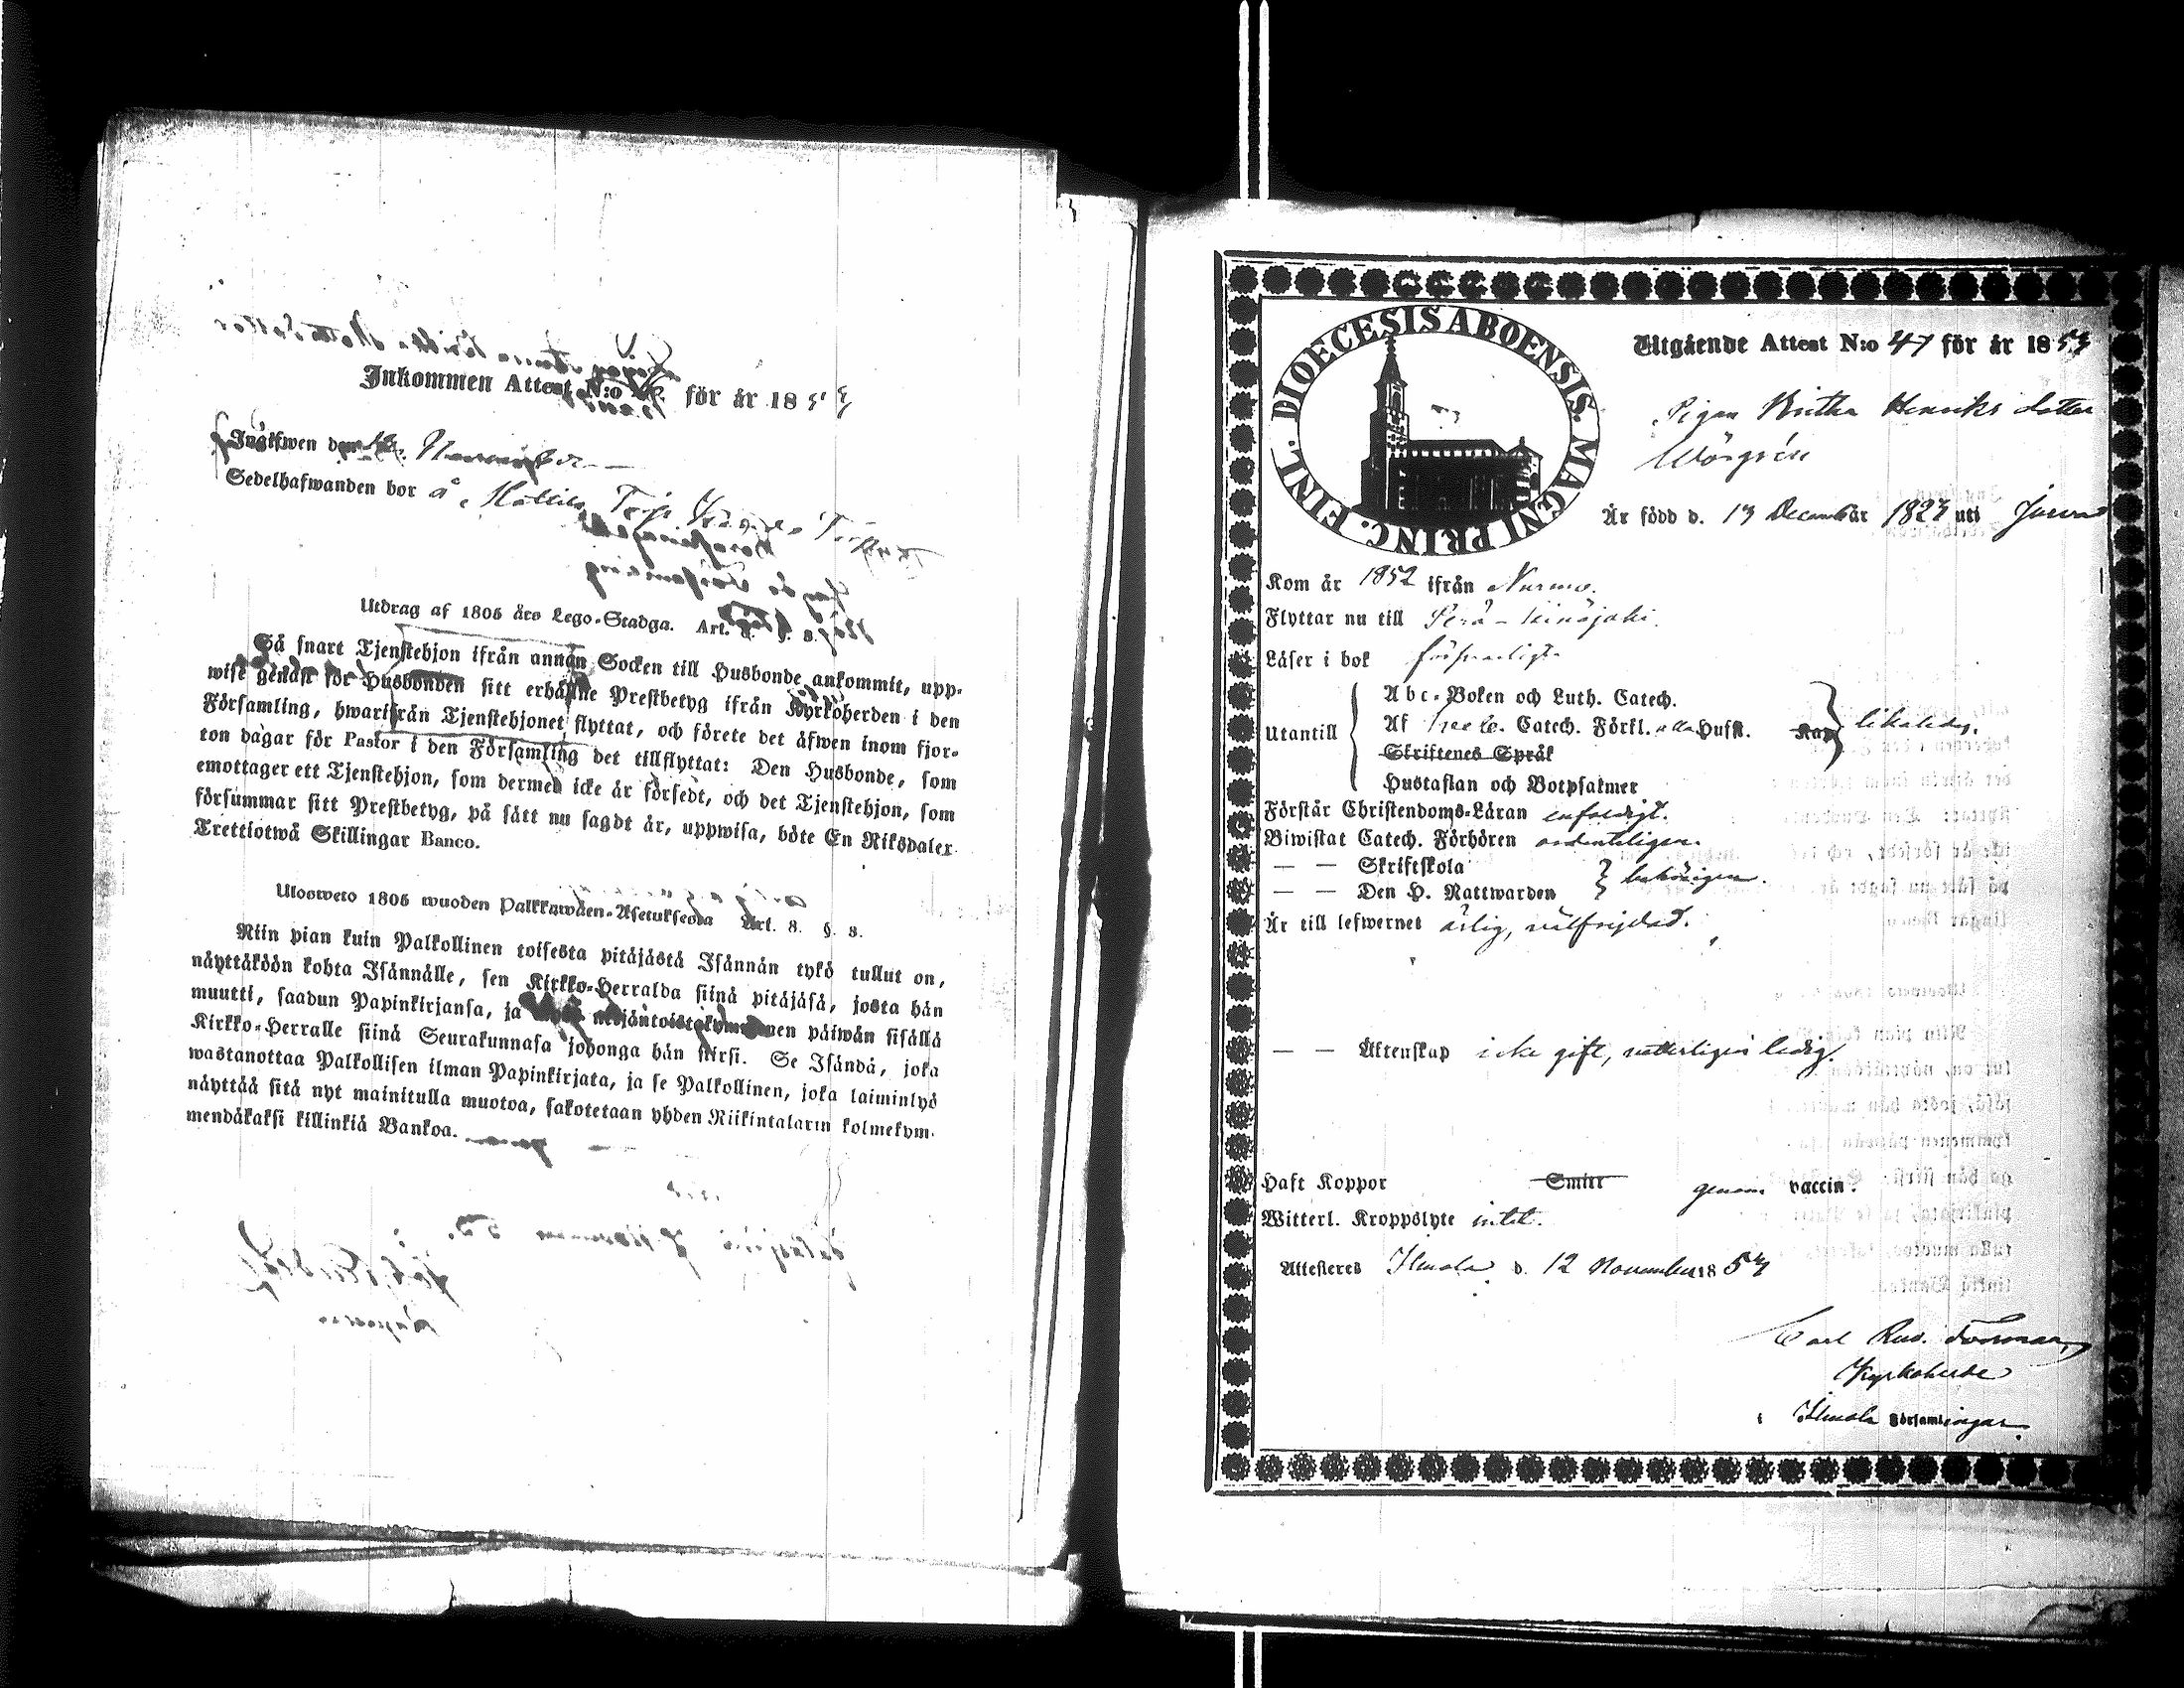 Inkommen Attest N:o för år 1853
Inskrifwen den November
Sedelhafwanden bor å Mattila
Utdrag af 1805 års Lego-Stadga. Art. 8. §. 8.
Så snart Tjenstehjon ifrån annan Socken till Husbonde ankommit, upp-
wise genast för Husbonden sitt erhållne Prestbetyg ifrån Kyrkoherden i den
Församling, hwarifrån Tjenstehjonet flyttat, och förete det äfwen inom fjor-
ton dagar för Pastor i den Församling det tillflyttat: Den Husbonde, som
emottager ett Tjenstehjon, som dermed icke är försedt, och det Tjenstehjon, som
försummar sitt Prestbetyg, på sätt nu sagdt är, uppwisa, böte En Riksdaler
Trettiotwå Skillingar Banco.
Ulosweto 1805 wuoden Palkkawäen-Asetuksesta Art. 8. §. 8.
Niin pian kuin Palkollinen toisesta pitäjästä Isännän tykö tullut on,
näyttäköön kohta Isännälle, sen Kirkko-Herralda siinä pitäjäsä, josta hän
muutti, saadun Papinkirjansa, ja neljäntoistakymmenen päiwän sisällä
Kirkko-Herralle siinä Seurakunnasa johonga hän siirsi. Se Isändä, joka
wastanottaa Palkollisen ilman Papinkirjata, ja se Palkollinen, joka laiminlyö
näyttää sitä nyt mainitulla muotoa, sakotetaan yhden Riikintalarin kolmekym-
mendäkaksi killinkiä Bankoa.
FINL. DIOECESIS ABOENSIS. MAGNI PRINC.
Utgående Attest N:o 47 för år 1853
Pigan Britha Henriks dotter
Wörgrén
Är född d. 13 December år 1823 uti
Kom år 1852 ifrån Nurmo.
Flyttar nu till Perä-Seinäjoki.
Läser i bok försvarligt
Abc-Boken och Luth. Catech.
Utantill Af Catech. Förkl. Husft. Kan likaledes.
Skriftenes Språk
Hustaflan och Botpsalmer
Förstår Christendoms-Läran enfaldigt.
Biwistat Catech. Förhören ordenteligen.
— — Skriftskola
— — Den H. Nattwarden behörigen.
Är till lefwernet ärlig, välfrejdad.
— — Äktenskap icke gift, vitterligen ledig.
Haft Koppor Smitt genom vaccin.
Witterl. Kroppslyte intet.
Attesteres Ilmola d. 12 November 1853
Carl Rud. Forsman
Kyrkoherde
i Ilmola Församlingar.